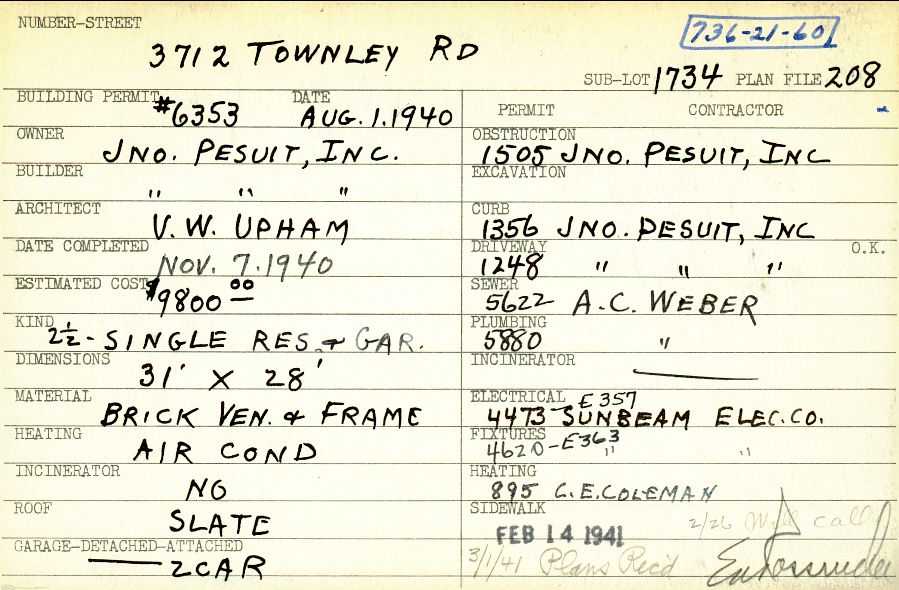 NUMBER-STREET
736-21-60
3712 TOWNLEY RD
SUB-LOT 1734 PLAN FILE 208
BUILDING PERMIT #6353 DATE AUG. 1. 1940
PERMIT CONTRACTOR
OWNER JNO. PESUIT, INC.
OBSTRUCTION 1505 JNO. PESUIT, INC
BUILDER " " "
EXCAVATION
ARCHITECT V. W. UPHAM
CURB 1356 JNO. PESUIT, INC
DATE COMPLETED NOV. 7. 1940
DRIVEWAY 1248 " " " O.K.
ESTIMATED COST $9800 00
SEWER 5622 A.C. WEBER
KIND 2½ - SINGLE RES. & GAR.
PLUMBING 5880 "
DIMENSIONS 31' X 28'
INCINERATOR
MATERIAL BRICK VEN. & FRAME
ELECTRICAL E 357
4473 SUNBEAM ELEC. CO.
HEATING AIR COND
FIXTURES 4620-E363 " "
INCINERATOR NO
HEATING 895 C. E. COLEMAN
ROOF SLATE
SIDEWALK
2/26 Will call
FEB 14 1941
GARAGE-DETACHED-ATTACHED
2 CAR
3/1/41 Plans Rec'd